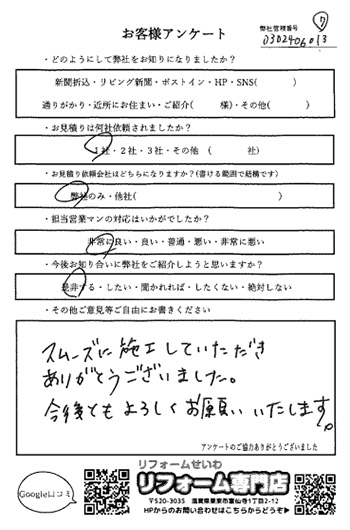 ⑦
お客様アンケート
弊社管理番号
0302406013
・どのようにして弊社をお知りになりましたか?
新聞折込・リビング新聞・ポストイン・HP・SNS( )
通りがかり・近所にお住まい・ご紹介( 様)・その他( )
・お見積りは何社依頼されましたか?
1社・2社・3社・その他 ( 社)
・お見積り依頼会社はどちらになりますか?(書ける範囲で結構です)
弊社のみ・他社( )
・担当営業マンの対応はいかがでしたか?
非常に良い・良い・普通・悪い・非常に悪い
・今後お知り合いに弊社をご紹介しようと思いますか?
是非する・したい・聞かれれば・したくない・絶対しない
・その他ご意見等ご自由にお書きください
スムーズに施工していただき
ありがとうございました。
今後ともよろしくお願いいたします。
アンケートのご協力ありがとうございました
Google口コミ
リフォームせいわ
リフォーム専門店
〒520-3035 滋賀県栗東市霊仙寺1丁目2-12
HPからのお問い合わせはこちらからどうぞ▶